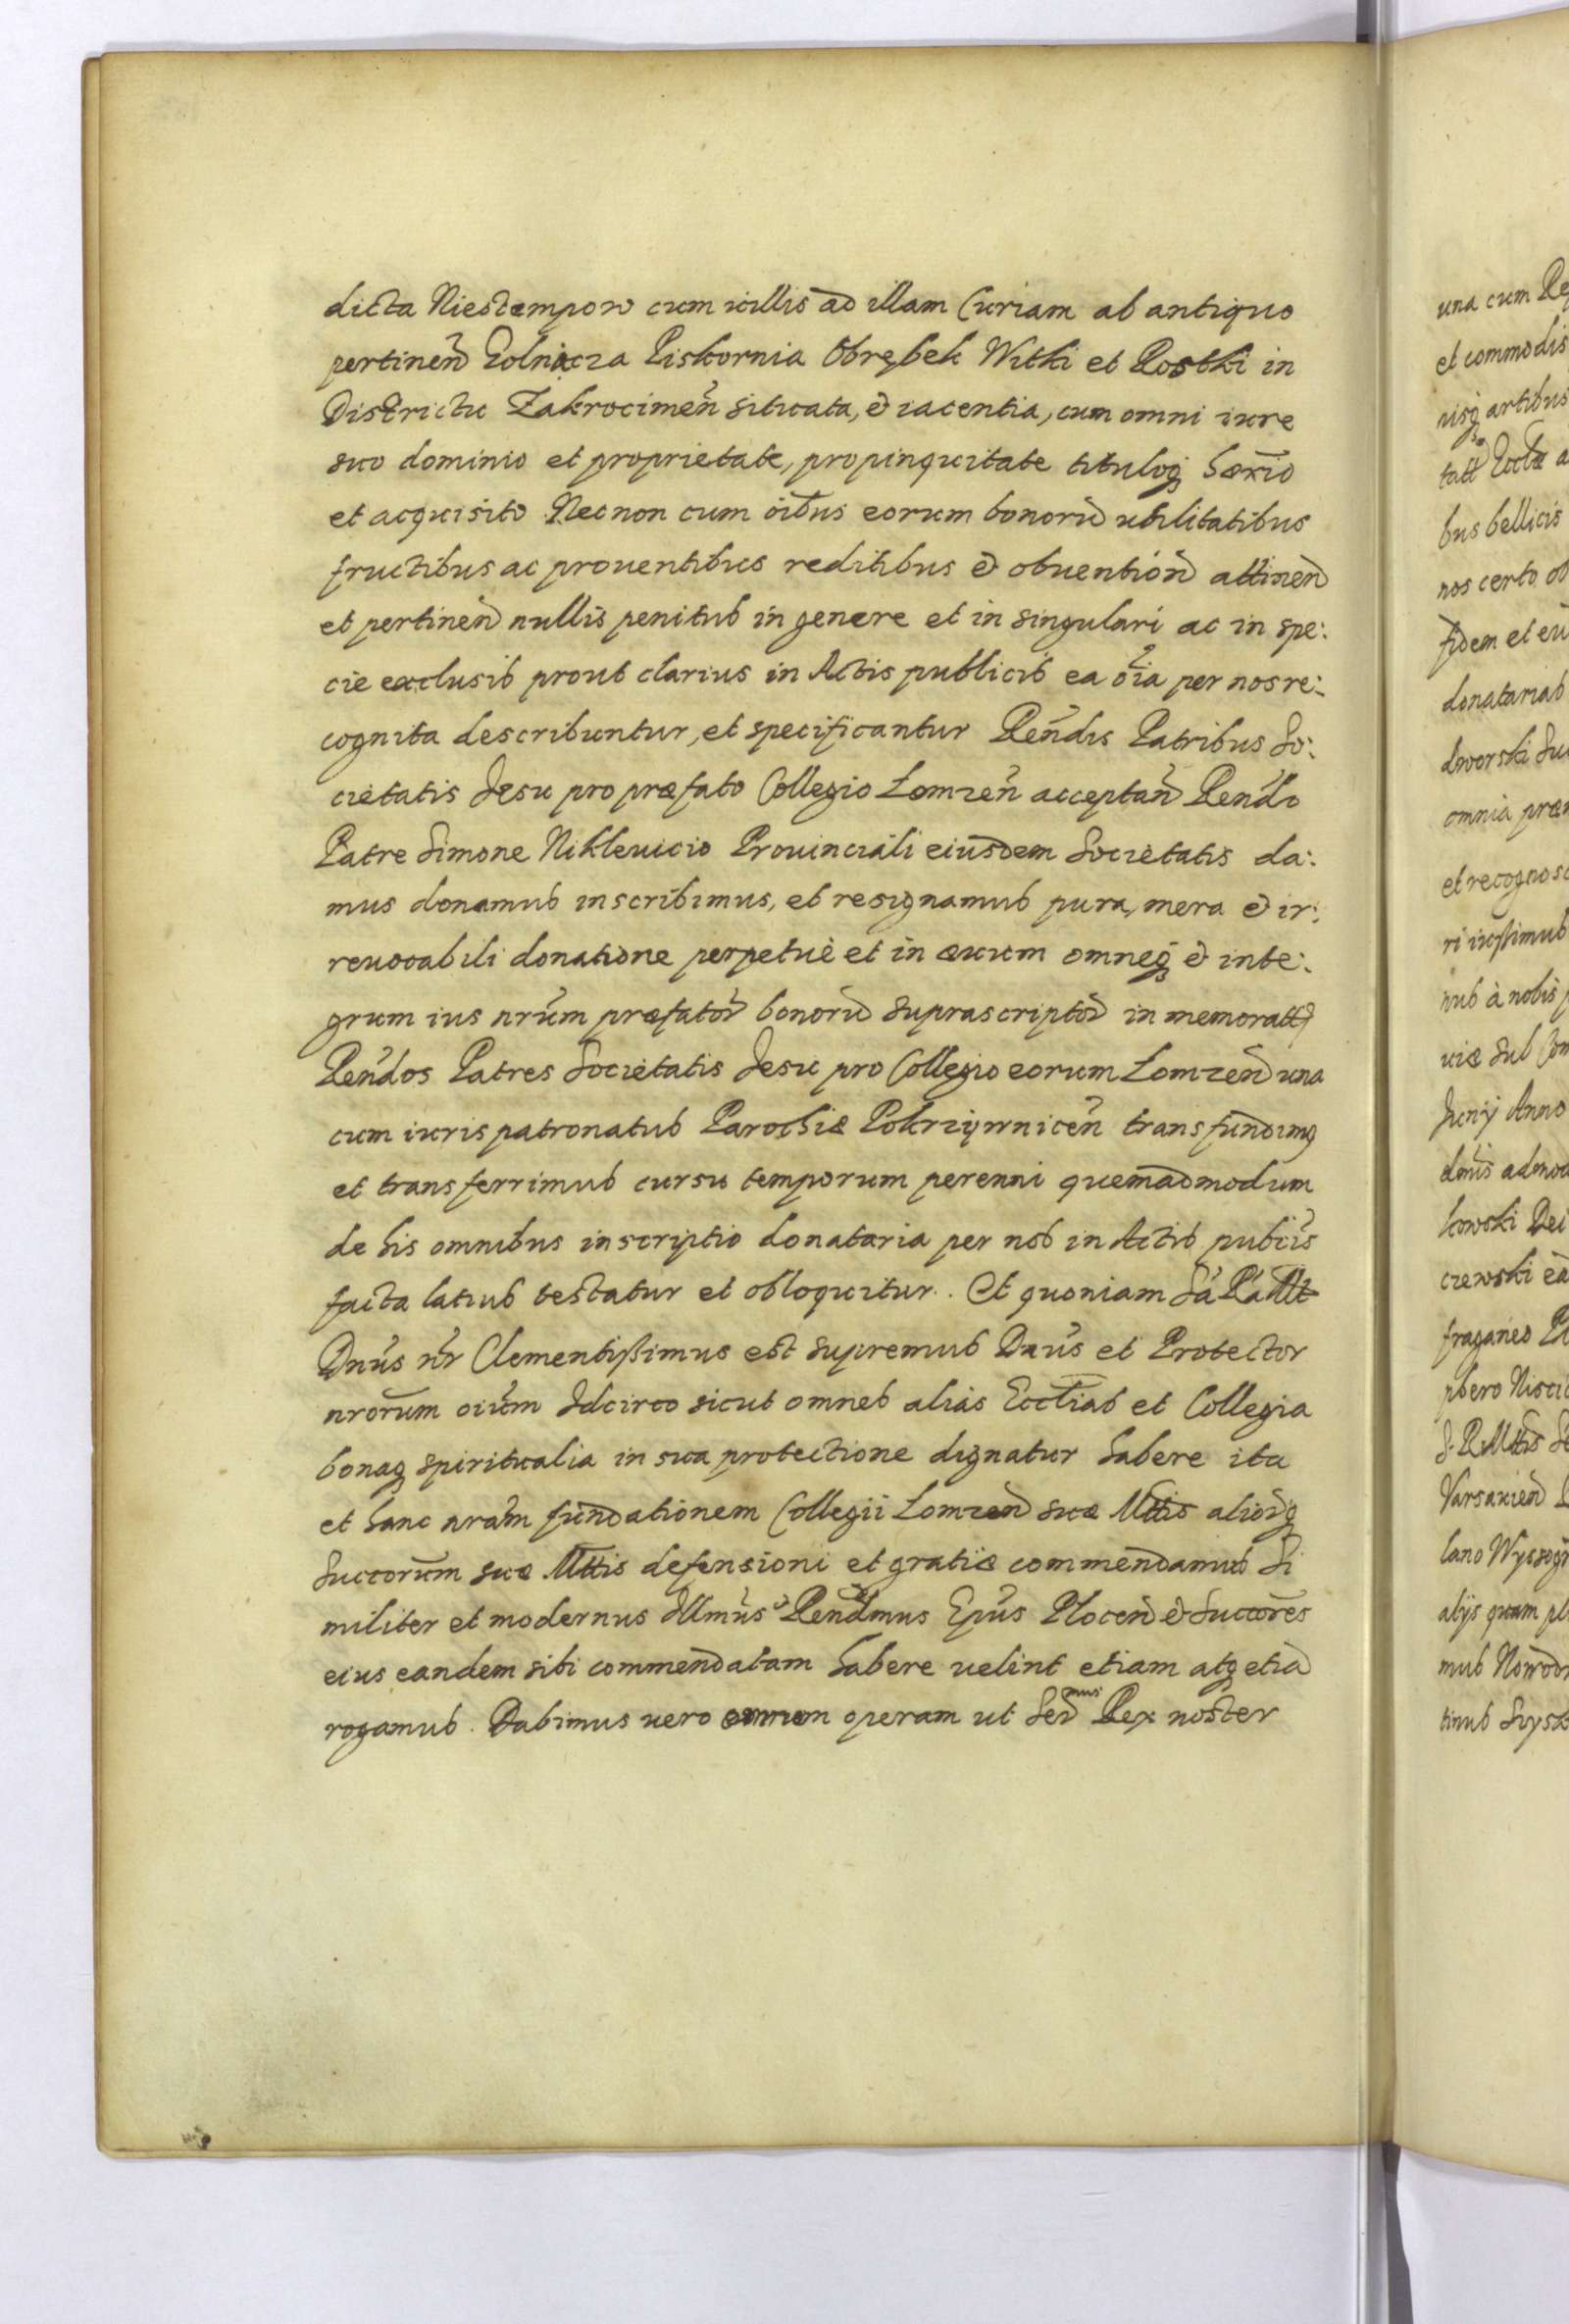 dicta Niestempow cum uillis ad illam Curiam ab antiquo
pertineñ Golniacza Piskornia Obrębek Witki et Rostki in
Districtu Zakrocimeñ situata, et iacentia, cum omni iure
suo dominio et proprietate, propinquitate tituloq hærio
et acquisito Necnon cum oibus eorum bonorũ utilitatibus
fructibus ac prouentibus reditibus et obuentioñ attineñ
et pertineñ nullis penitus in genere et in singulari ac in spe:
cie exclusis prout clarius in Actis publicis ea oia per nos re:
cognita describuntur, et specificantur Rendis Patribus So:
cietatis Jesu pro præfato Collegio Lomzeñ acceptañ Rendo
Patre Simone Niklewicio Prouinciali eiusdem Societatis da:
mus donamus inscribimus, et resignamus pura, mera et ir:
reuocabili donatione perpetuè et in æuum omneq et inte:
grum ius nrum præfator bonorũ suprascriptor in memoratt
Rendos Patres Societatis Jesu pro Collegio eorum Lomzeñ una
cum iuris patronatus Parochiæ Pokrzywniceñ transfundimq
et transferrimus cursu temporum perenni quemadmodum
de his omnibus inscriptio donataria per nos in Actis pubcis
facta latius testatur et obloquitur. Et quoniam Sa Ra Mt
Dnus nr Clementißimus est supremus Dnus et Protector
nrorum oium Idcirco sicut omnes alias Ecclias et Collegia
bonaq spiritualia in sua protectione dignatur habere ita
et hanc nram fundationem Collegii Lomzeñ suæ Mttis aliorq
Succorum suæ Mttis defensioni et gratiæ commendamus Si
militer et modernus Illmus Rendmus Epus Ploceñ et Succores
eius eandem sibi commendatam habere uelint etiam atq etiã
rogamus. Dabimus uero omnem operam ut Sermus Rex noster
una cum
et commodis
artibus
tatt Ecclæ
bus bellicis
nos certo
fidem et
donatarias
dworski
omnia
et
ri iussimus
nus à nobis
uiæ sub
Junij Anno
kowski Dei
czewski
fraganeo
Varsauieñ
lano
alijs quam
mus